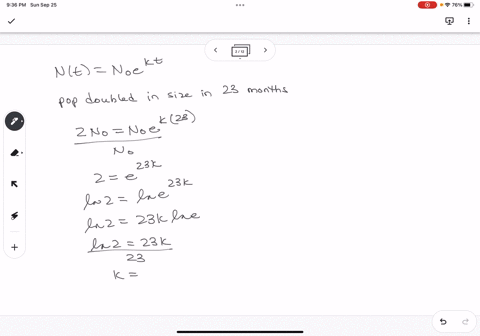 9:36 PM Sun Sep 25
76%
1/13
N(t) = N₀e^{kt}
pop doubled in size in 23 months
2N₀ = N₀e^{k(23)}
N₀
2 = e^{23k}
ln 2 = ln e^{23k}
ln 2 = 23k ln e
ln 2 = 23k
23
k =